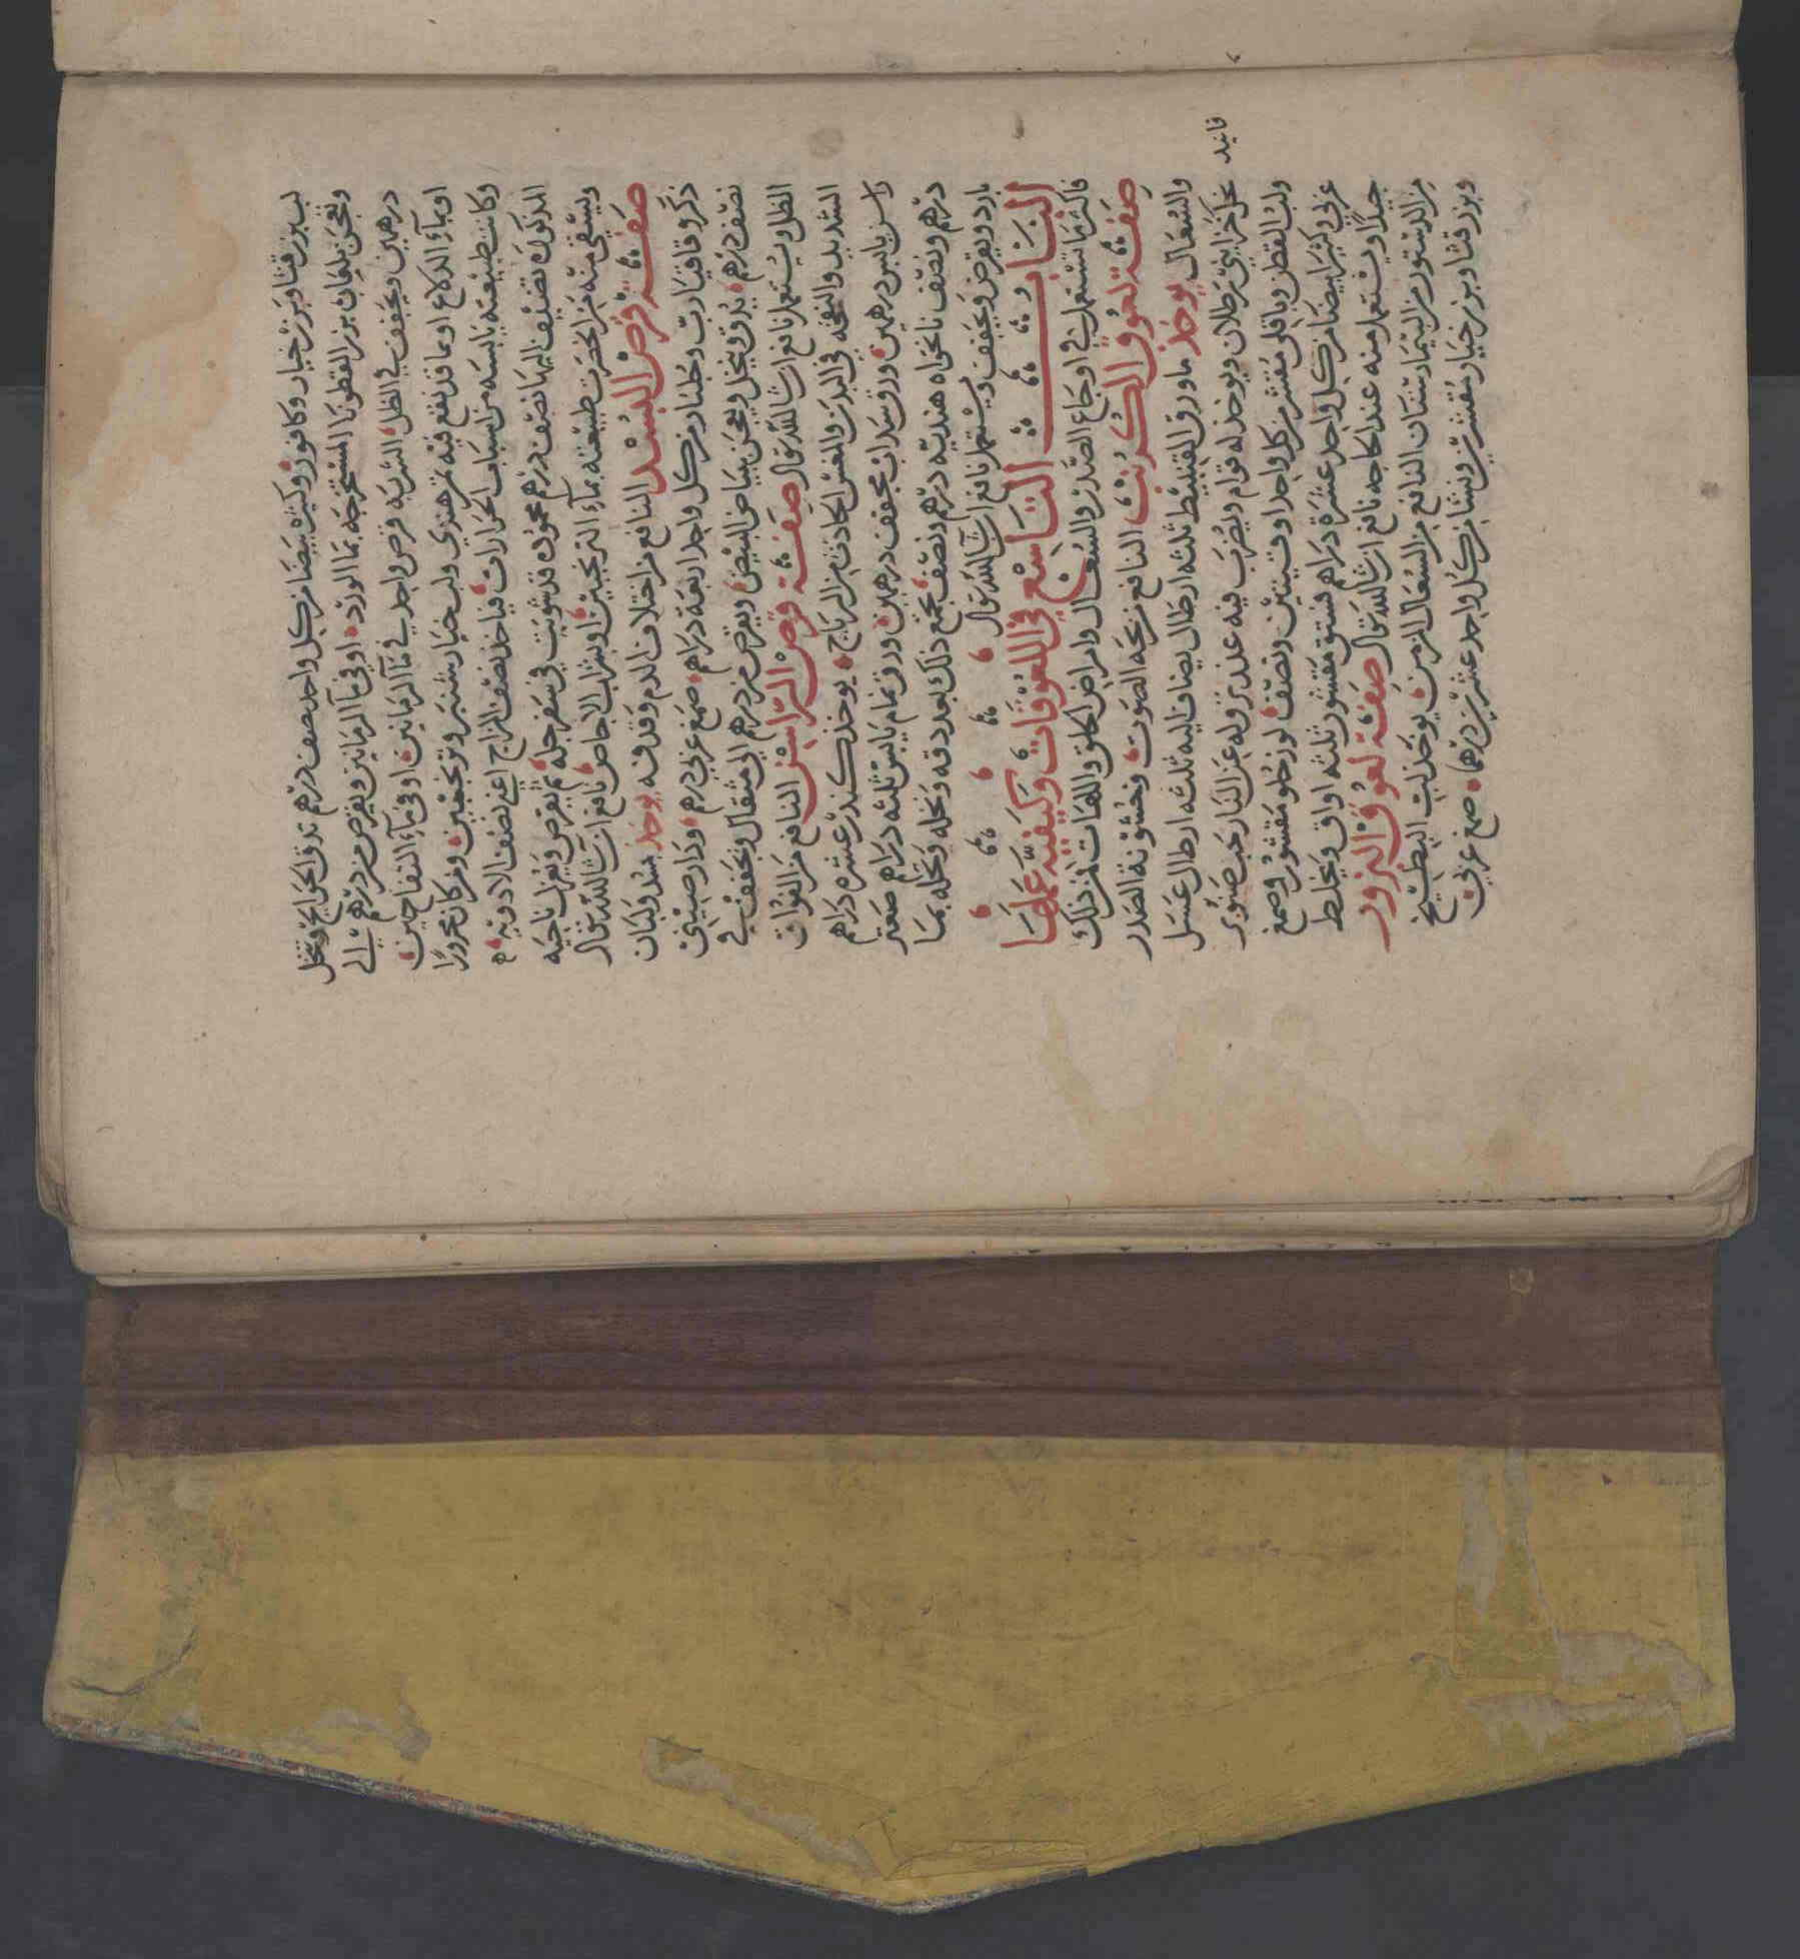 لب بزر قثا وبزر خيار وكافور وكثيرا بيضا من كل واحد نصف درهم تدق الحوايج وتنخل
وتعجن بلعاب بزر القطونا المستخرجه بما الورد او في ماء الرمانين ويقرص من درهم الى
درهمين ويجفف في الظل الشربه قرص واحد في ماء الرمانين او في ماء التفاحين
او بماء الدلاع او بما قد نقع فيه تمر هندي ولب خيار شنبر وترنجبين ومن كان محرورا
وكانت طبيعته يابسه من اسباب الحرارات فياخذ نصف الزاج اعني نصف الادويه
المذكوره تضيف اليها نصف درهم محموده قد شويت في سفرجله ثم يقرص ويعزل ناحيه
ويسقى منه من انحصرت طبيعته بماء الترنجبين او بشراب الاجاص نافع ان شا الله تعالى
صفة قرص البسد النافع من اختلاف الدم وقذفه يوخذ بسد ولبان
ذكر وقاقيا رب وجلنار من كل واحد اربعة دراهم صمغ عربي درهم ودار صيني
نصف درهم يدق وينخل ويعجن ببياض البيض ويقرص من درهم الى مثقال ويجفف في
الظل ويستعمل نافع ان شا الله تعالى صفة قرص الراسن النافع من الفواق
الشديد والنفخه في البدن والمغس الحادث من الرياح يوخذ كندر عشره دراهم
راسن يابس درهمين ورق سداب مجفف درهمين ورق نمام يابس ثلثه دراهم صعتر
درهم ونصف نانخواه هنديه درهم ونصف يجمع ذلك بعد دقه ونخله ونحله بما
بارد ويقرص ويجفف ويستعمل نافع ان شا الله تعالى
البـاب التاسع في اللعوقات وكيفية عملها
فاكثر ما تستعمل في اوجاع الصدر والسعال وامراض الحلق واللهات فمن ذلك
صفة لعوق الكرنب النافع من بحه الصوت وخشونة الصدر
والسعال يوخذ ما ورق القنبيط ثلثه ارطال يضاف اليه ثلثه ارطال عسل
نحل خزايني رطلان ويوخذ له قوام ويضرب فيه عند نزوله عن النار حب صنوبر
فانيد
ولب القطن وباقلى مقشر من كل واحد اوقيتين ونصف لوز حلو مقشور وصمغ
عربي وكثيرا بيضا من كل واحد عشرة دراهم فستق مقشور ثلثه اواق ويخلط
جيدا ويستعمل منه عند الحاجه نافع ان شا الله تعالى صفة لعوق البزور
من الدستور من البيمارستان النافع من السعال المزمن يوخذ لب البطيخ
وبزر قثا وبزر خيار مقشرين ونشا من كل واحد عشرين درهما صمغ عربي